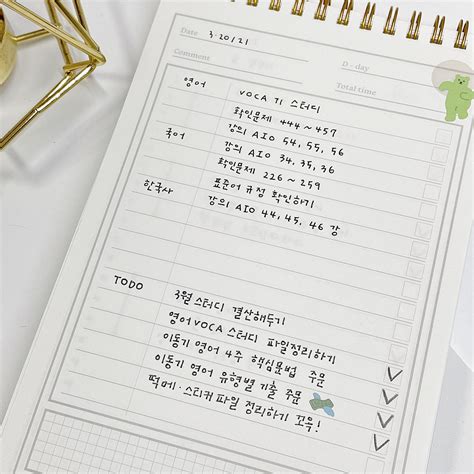 Date 3.20/21
Comment
D-day
Total time
영어 VOCA 기 스터디
확인문제 444~457
강의 A10 54, 55, 56
국어 강의 A10 34, 35, 36
확인문제 226~259
표준어 규정 확인하기
한국사 강의 A10 44, 45, 46 강
TODO 3월 스터디 결산해두기
영어 VOCA 스터디 파일정리하기
이동기 영어 4주 핵심문법 주문
이동기 영어 유형별 기출 주문
떡메·스티커 파일 정리하기 꼬옥!